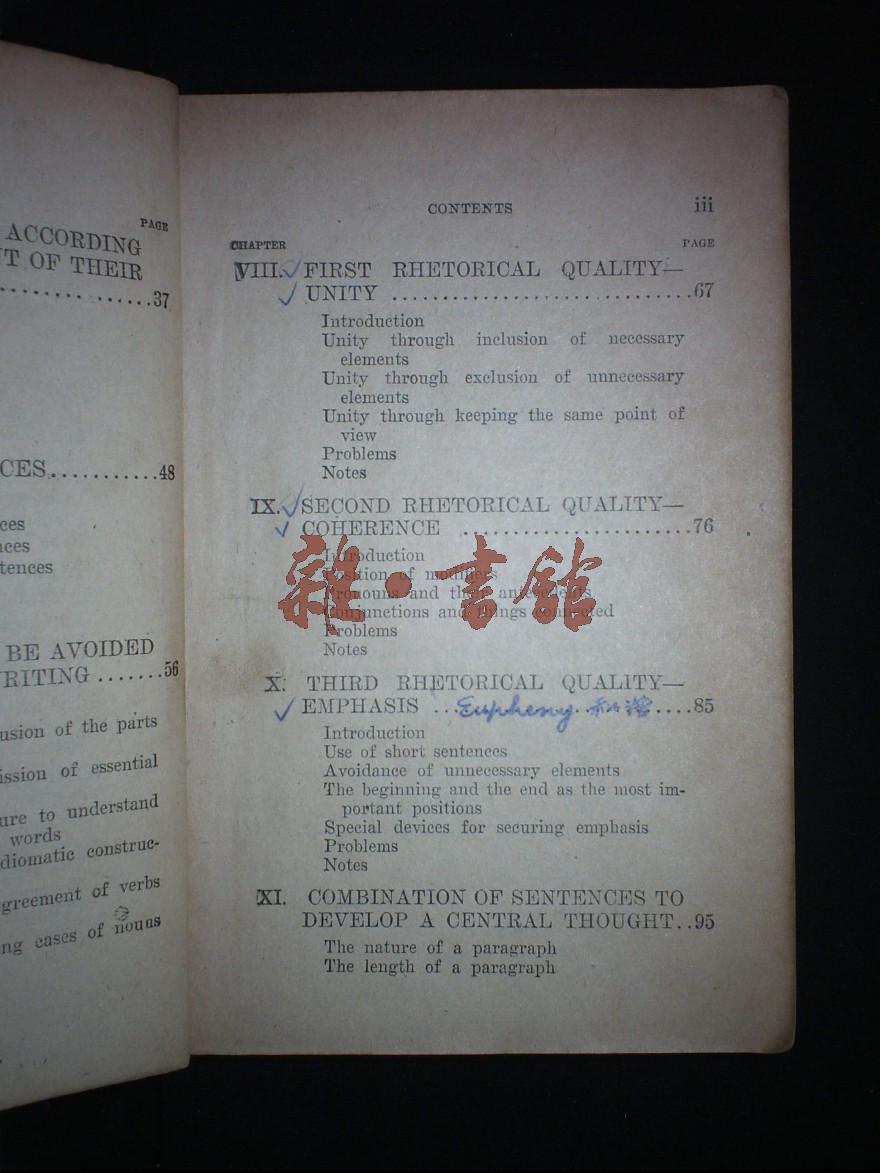 PAGE
ACCORDING
T OF THEIR
..............37
CES...........48
ces
nces
tences
BE AVOIDED
RITING.......56
usion of the parts
ission of essential
ure to understand
words
diomatic construc-
greement of verbs
ng cases of nouns
CONTENTS iii
CHAPTER PAGE
VIII. FIRST RHETORICAL QUALITY—
UNITY ..............................67
Introduction
Unity through inclusion of necessary
elements
Unity through exclusion of unnecessary
elements
Unity through keeping the same point of
view
Problems
Notes
IX. SECOND RHETORICAL QUALITY—
COHERENCE .......................76
Introduction
Position of modifiers
Pronouns and their antecedents
Conjunctions and things connected
Problems
Notes
雜·書館
X. THIRD RHETORICAL QUALITY—
EMPHASIS ...Eupheny....85
Introduction
Use of short sentences
Avoidance of unnecessary elements
The beginning and the end as the most im-
portant positions
Special devices for securing emphasis
Problems
Notes
XI. COMBINATION OF SENTENCES TO
DEVELOP A CENTRAL THOUGHT..95
The nature of a paragraph
The length of a paragraph